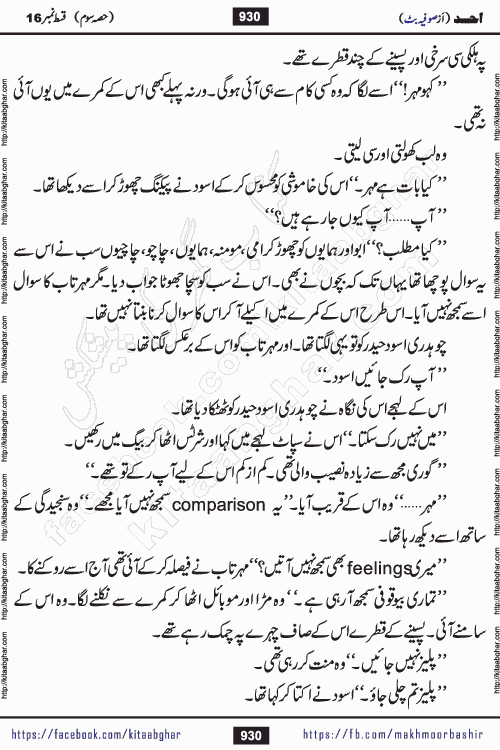 احد (از صوفیہ بٹ) 930 (حصہ سوم) قسط نمبر 16
پہ ہلکی سی سرخی اور پسینے کے چند قطرے تھے۔
’’کہو مہر!‘‘ اسے لگا کہ وہ کسی کام سے ہی آئی ہوگی۔ ورنہ پہلے کبھی اس کے کمرے میں یوں آئی
نہ تھی۔
وہ لب کھولتی اور سی لیتی۔
’’کیا بات ہے مہر۔‘‘ اس کی خاموشی کو محسوس کر کے اسود نے پیکنگ چھوڑ کر اسے دیکھا تھا۔
’’آپ...... آپ کیوں جا رہے ہیں؟‘‘
’’کیا مطلب؟‘‘ ابو اور ہمایوں کو چھوڑ کر امی، مومنہ، ہمایوں، چاچو، چاچیوں سب نے اس سے
یہ سوال پوچھا تھا یہاں تک کہ بچوں نے بھی۔ اس نے سب کو سچا جھوٹا جواب دیا۔ مگر مہرتاب کا سوال
اسے سمجھ نہیں آیا۔ اس طرح اس کے کمرے میں اکیلے آ کر اس کا سوال کرنا بنتا نہیں تھا۔
چوہدری اسود حیدر کو تو یہی لگتا تھا۔ اور مہرتاب کو اس کے برعکس لگتا تھا۔
’’آپ رک جائیں اسود۔‘‘
اس کے لہجے اس کی نگاہ نے چوہدری اسود حیدر کو ٹھٹکا دیا تھا۔
’’میں نہیں رک سکتا۔‘‘ اس نے سپاٹ لہجے میں کہا اور شرٹس اٹھا کر بیگ میں رکھیں۔
’’گوری مجھ سے زیادہ نصیب والی تھی۔ کم از کم اس کے لیے آپ رکے تو تھے۔‘‘
’’مہر......‘‘ وہ اس کے قریب آیا۔ ’’یہ comparison سمجھ نہیں آیا مجھے۔‘‘ وہ سنجیدگی کے
ساتھ اسے دیکھ رہا تھا۔
’’میری feelings بھی سمجھ نہیں آتیں؟‘‘ مہرتاب نے فیصلہ کر کے آئی تھی آج اسے روکنے کا۔
’’تمہاری بیوقوفی سمجھ آ رہی ہے۔‘‘ وہ مڑا اور موبائل اٹھا کر کمرے سے نکلنے لگا۔ وہ اس کے
سامنے آئی۔ پسینے کے قطرے اس کے صاف چہرے پہ چمک رہے تھے۔
’’پلیز نہیں جائیں۔‘‘ وہ منت کر رہی تھی۔
’’پلیز تم چلی جاؤ۔‘‘ اسود نے اکتا کر کہا تھا۔
https://facebook.com/kitaabghar 930 https://fb.com/makhmoorbashir
http://kitaabghar.com